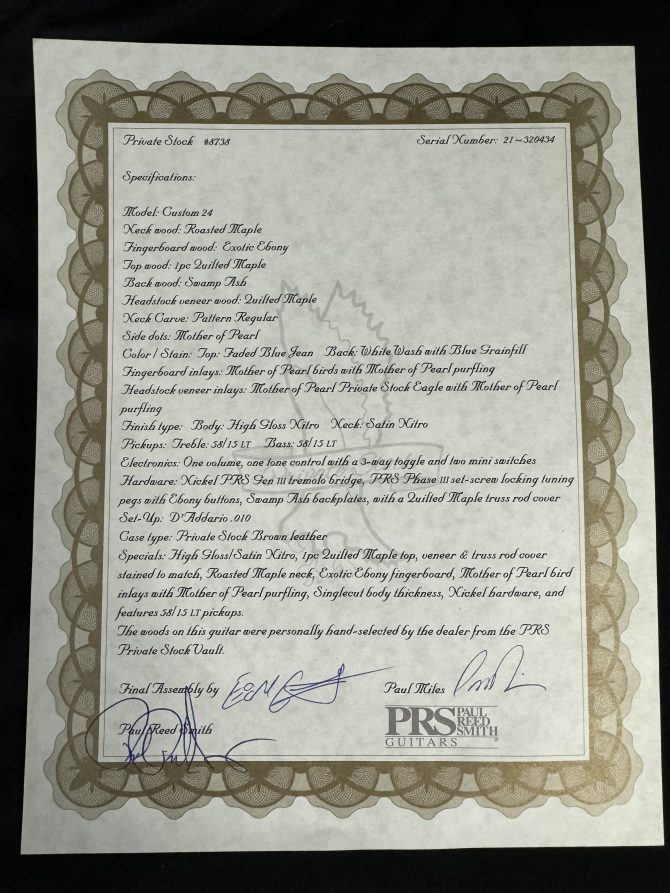 Private Stock #8738 Serial Number: 21~320434
Specifications:
Model: Custom 24
Neck wood: Roasted Maple
Fingerboard wood: Exotic Ebony
Top wood: 1pc Quilted Maple
Back wood: Swamp Ash
Headstock veneer wood: Quilted Maple
Neck Carve: Pattern Regular
Side dots: Mother of Pearl
Color / Stain: Top: Faded Blue Jean Back: White Wash with Blue Grainfill
Fingerboard inlays: Mother of Pearl birds with Mother of Pearl purfling
Headstock veneer inlays: Mother of Pearl Private Stock Eagle with Mother of Pearl
purfling
Finish type: Body: High Gloss Nitro Neck: Satin Nitro
Pickups: Treble: 58/15 LT Bass: 58/15 LT
Electronics: One volume, one tone control with a 3-way toggle and two mini switches
Hardware: Nickel PRS Gen III tremolo bridge, PRS Phase III set-screw locking tuning
pegs with Ebony buttons, Swamp Ash backplates, with a Quilted Maple truss rod cover
Set-Up: D'Addario .010
Case type: Private Stock Brown leather
Specials: High Gloss/Satin Nitro, 1pc Quilted Maple top, veneer & truss rod cover
stained to match, Roasted Maple neck, Exotic Ebony fingerboard, Mother of Pearl bird
inlays with Mother of Pearl purfling, Singlecut body thickness, Nickel hardware, and
features 58/15 LT pickups.
The woods on this guitar were personally hand-selected by the dealer from the PRS
Private Stock Vault.
Final Assembly by Paul Miles
Paul Reed Smith
PRS PAUL REED SMITH
GUITARS